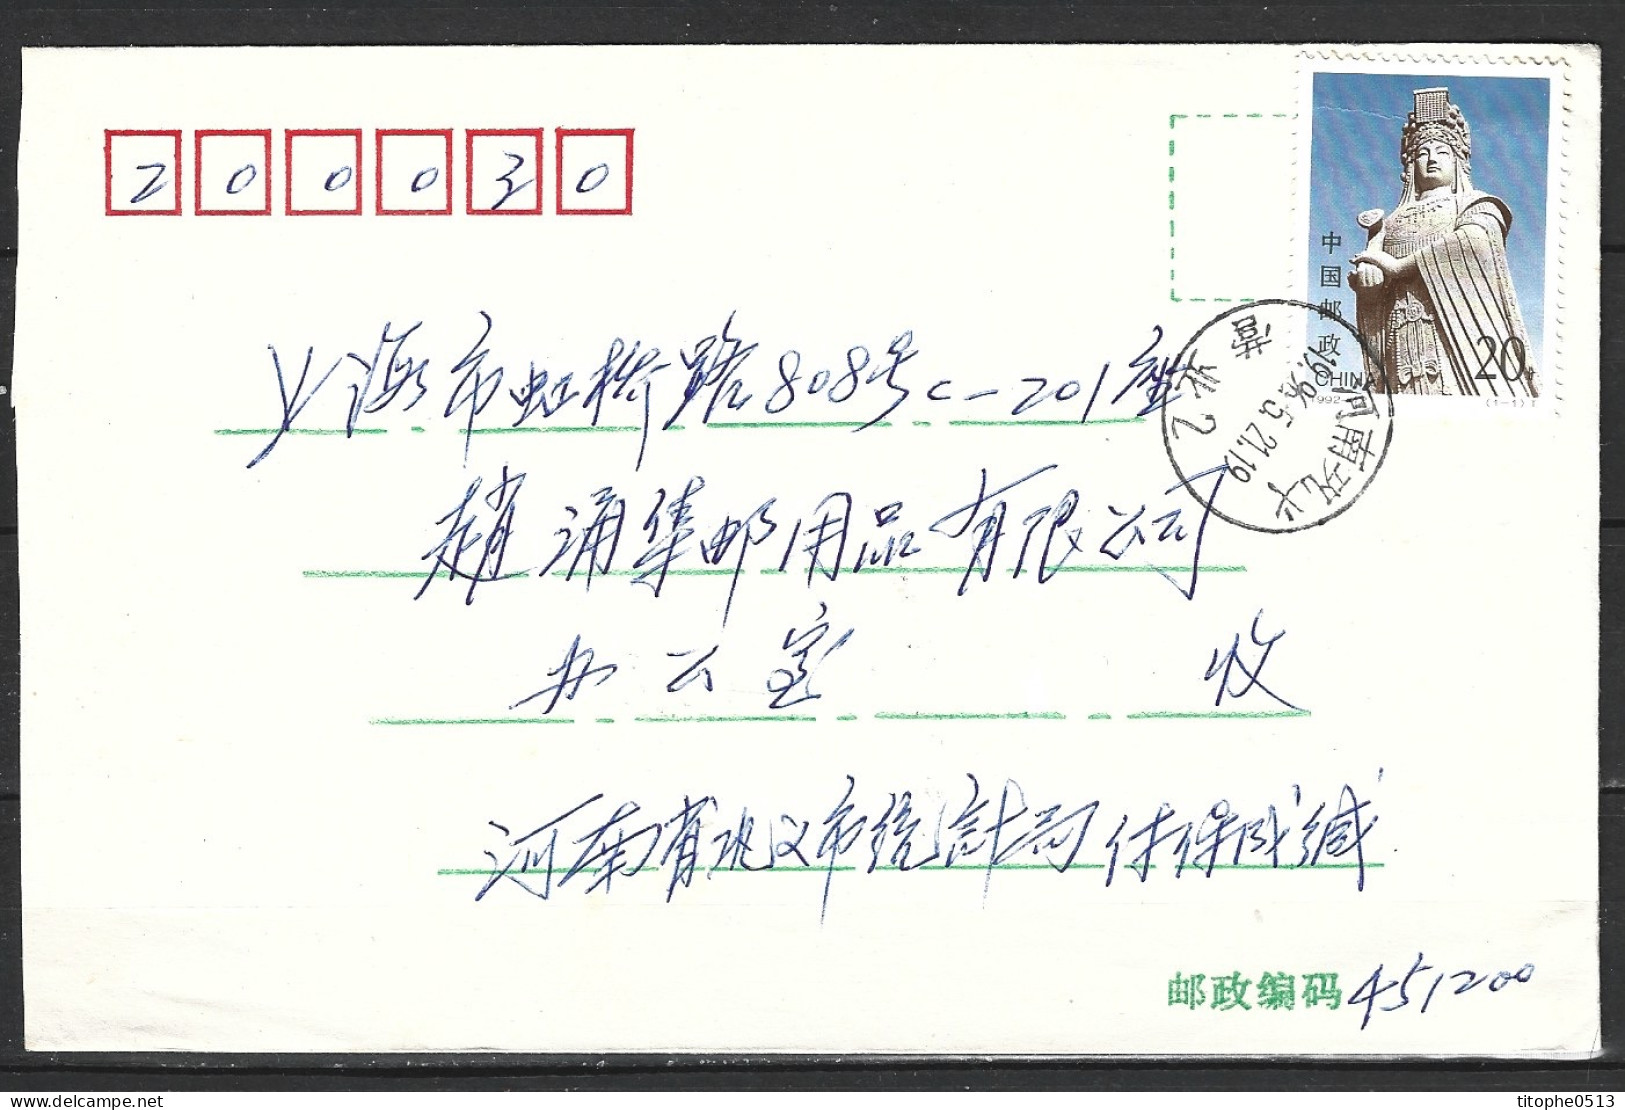 200030
中国邮政
20分
CHINA
1992-
(1-1)T
上海市虹桥路808号C-201座
趙涌集邮用品有限公司
办公室 收
河南省巩义市统计局
缄
邮政编码 451200
河南巩义
1996.5.21.19
营业2
titophe0513